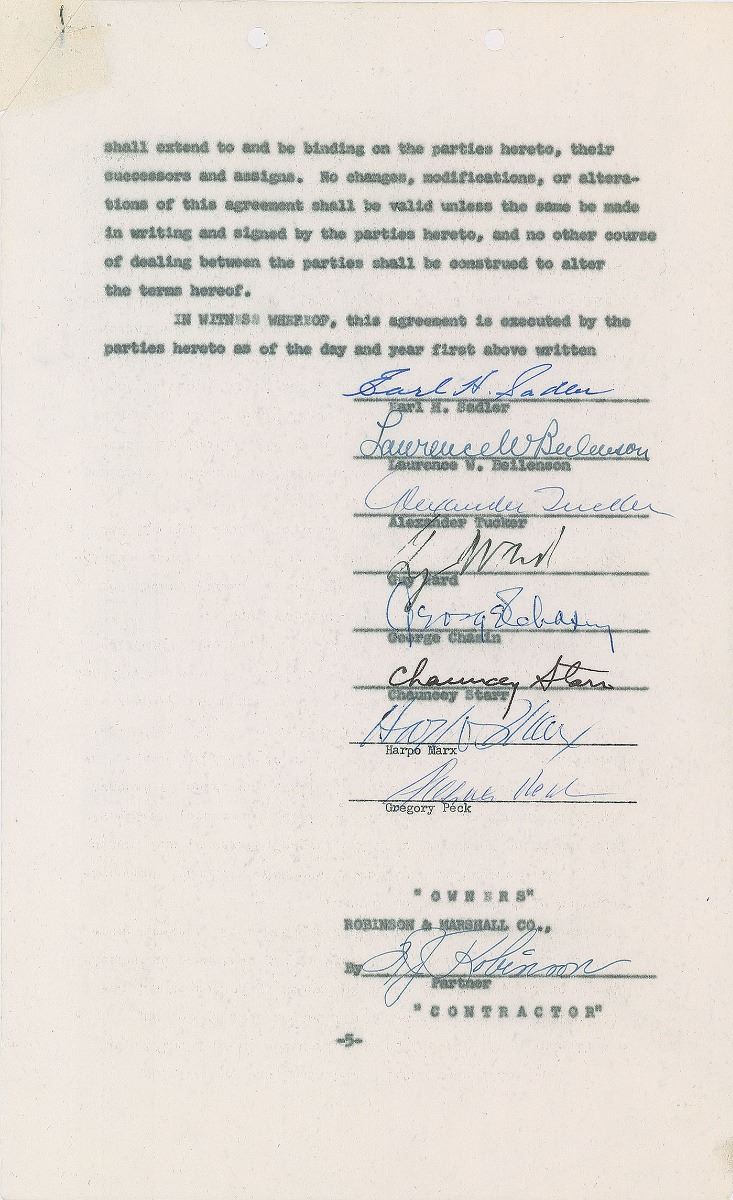 shall extend to and be binding on the parties hereto, their
successors and assigns. No changes, modifications, or altera-
tions of this agreement shall be valid unless the same be made
in writing and signed by the parties hereto, and no other course
of dealing between the parties shall be construed to alter
the terms hereof.
IN WITNESS WHEREOF, this agreement is executed by the
parties hereto as of the day and year first above written
Earl H. Sadler
Earl H. Sadler
Laurence W Beilenson
Laurence W. Beilenson
Alexander Tucker
Alexander Tucker
Guy Ward
Guy Ward
George Chasin
George Chasin
Chauncey Starr
Chauncey Starr
Harpo Marx
Harpo Marx
Gregory Peck
Gregory Peck
"OWNERS"
ROBINSON & MARSHALL CO.,
By Robinson
Partner
"CONTRACTOR"
-5-